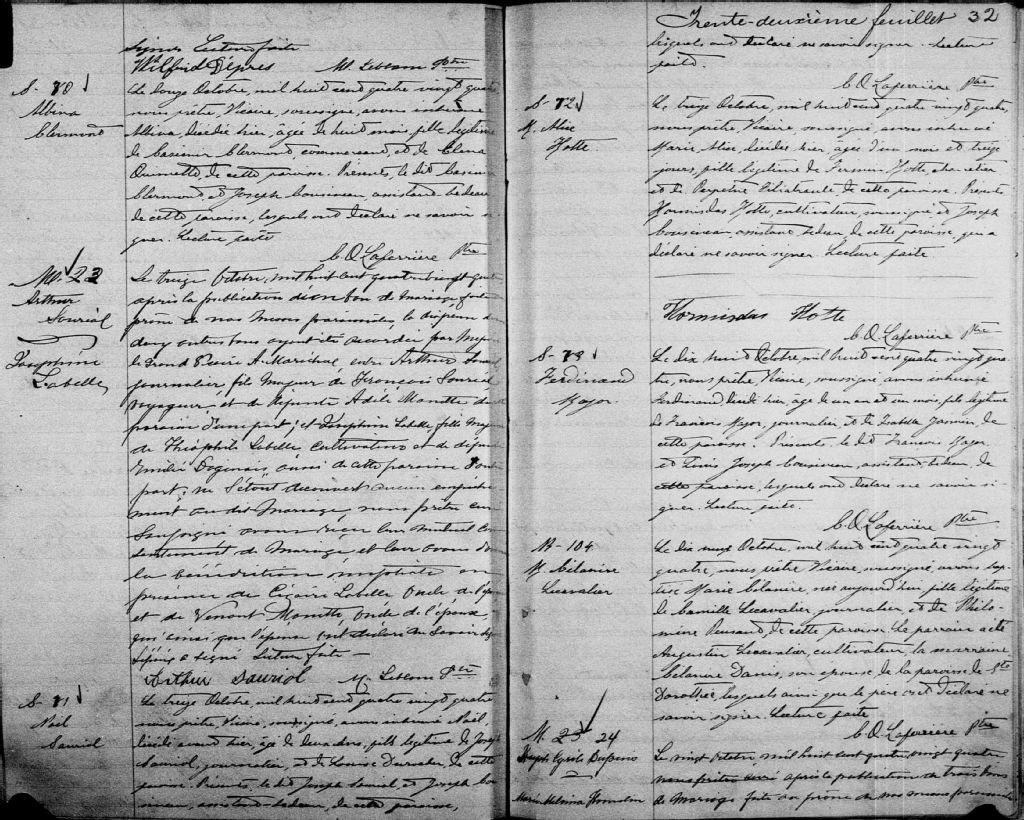 signer Lecture faite
Wilfrid Dépres M. Leblanc Ptre
S- 70
Albina
Clermond
Le douze Octobre, mil huit cent quatre vingt quatre
nous prêtre, Vicaire, soussigné, avons inhumé
Albina, décédée hier, âgée de huit mois, fille légitime
de Casimir Clermond, commerçant, et de Elena
Ouimette, de cette paroisse. Présents, le dit Casimir
Clermond, et Joseph Cousineau assistant bedeau
de cette paroisse, lesquels ont déclaré ne savoir si-
gner. Lecture faite
C. O. Laferrière Ptre
M. 23
Arthur
Sauriol
Josephine
Labelle
Le treize Octobre, mil huit cent quatre vingt quatre
après la publication d'un ban de mariage faite
prône de nos messes paroissiales, la dispense de
deux autres bans ayant été accordée par
le Grand Vicaire A. Maréchal entre Arthur Sauriol
journalier fils majeur de François Sauriol
voyageur, et de défunte Adele Monette de
paroisse d'une part; et Joséphine Labelle, fille majeure
de Théophile Labelle, cultivateur et de défunte
Emilie Dagenais, aussi de cette paroisse d'autre
part, ne s'étant découvert aucun empêche
ment au dit mariage, nous prêtre curé
soussigné avons reçu leur mutuel con
sentement de mariage, et leur avons donné
la bénédiction nuptiale en
présence de Labelle Oncle de l'époux
et de Venant Monette, oncle de l'épouse,
qui ainsi que l'épouse ont déclaré ne savoir signer
l'époux a signé Lecture faite —
Arthur Sauriol M. Leblanc Ptre
S- 71
Noël
Sauriol
Le treize Octobre, mil huit cent quatre vingt quatre
nous prêtre, Vicaire, soussigné, avons inhumé Noël,
décédé avant hier, âgé de deux ans, fils légitime de Joseph
Sauriol, journalier, et de Louise de cette
paroisse. Présents, le dit Joseph Sauriol, et Joseph Cou
sineau, assistant-bedeau, de cette paroisse,
Trente-deuxième feuillet 32
lesquels ont déclaré ne savoir signer. Lecture
faite.
C. O. Laferrière Ptre
S- 72
M. Alice
Hotte
Le treize Octobre, mil huit cent quatre vingt quatre,
nous prêtre, Vicaire, soussigné, avons inhumé
Marie Alice, décédée hier, âgée d'un mois et treize
jours, fille légitime de Hotte, charretier
et de Perpetue Filiatrault de cette paroisse. Présents
Hormisdas Hotte, cultivateur, soussigné, et Joseph
Cousineau assistant bedeau de cette paroisse, qui a
déclaré ne savoir signer. Lecture faite
Hormisdas Hotte
C. O. Laferrière Ptre
S- 73
Ferdinand
Major
Le dix huit Octobre, mil huit cent quatre vingt qua-
tre, nous prêtre, Vicaire, soussigné, avons inhumé
Ferdinand décédé hier, âgé de un an et un mois, fils légitime
de François Major, journalier, et de Isabelle de
cette paroisse. Présents, le dit François Major,
et Louis Joseph Cousineau, assistant, bedeau, de
cette paroisse, lesquels ont déclaré ne savoir si-
gner. Lecture faite.
C. O. Laferrière Ptre
B- 104
M. Célanire
Lecavalier
Le dix neuf Octobre, mil huit cent quatre vingt
quatre, nous prêtre Vicaire, soussigné, avons bap-
tisé Marie Célanire, née aujourd'hui, fille légitime
de Camille Lecavalier journalier, et de Philo-
mène de cette paroisse. Le parrain a été
Augustin Lecavalier, cultivateur, la marraine
Célanire Danis, son épouse de la paroisse de Ste
Dorothée, lesquels ainsi que le père ont déclaré ne
savoir signer. Lecture faite
C. O. Laferrière Ptre
M. 23 24
Marie Melvina
Le vingt Octobre, mil huit cent quatre vingt quatre
après la publication de trois bans
de mariage faite au prône de nos messes paroissiales